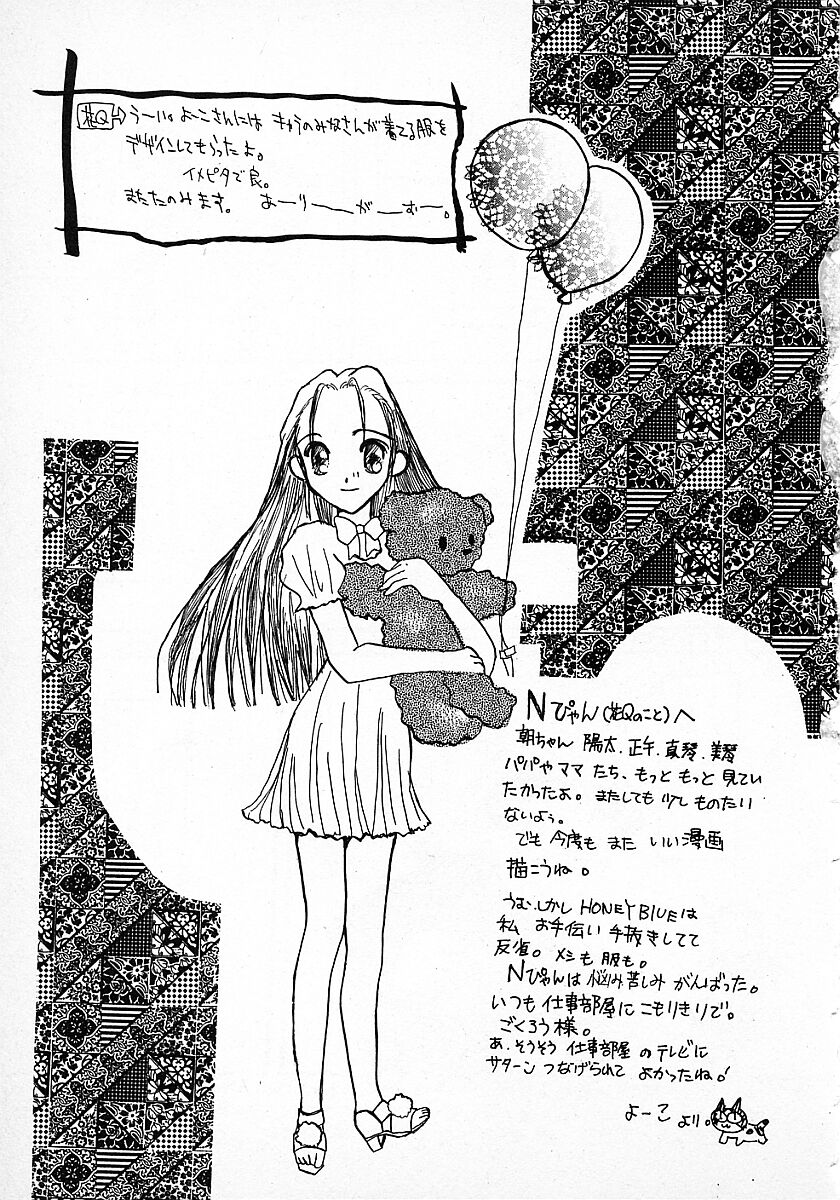 花Q⇨う〜い。よーこさんには きゃらのみなさんが着てる服を
デザインしてもらったよ。
イメピタで良。
またたのみます。 あーりーがーむー。
Nぴゃん(花Qのこと)へ
朝ちゃん 陽太、正午、真琴、美琴
パパやママ たち、もっと もっと 見てい
たかったよ。またしても 少し ものたい
ないよぅ。
でも 今度も また いい漫画
描こうね。
うむ、しかし HONEY BLUEは
私 お手伝い 手抜きしてて
反省。メシも 服も。
Nぴゃんは 悩み苦しみ がんばった。
いつも 仕事部屋に こもりきりで。
ごくろう様。
あ、そうそう 仕事部屋 のテレビに
サターン つなげられて よかったね!
よーこ より。